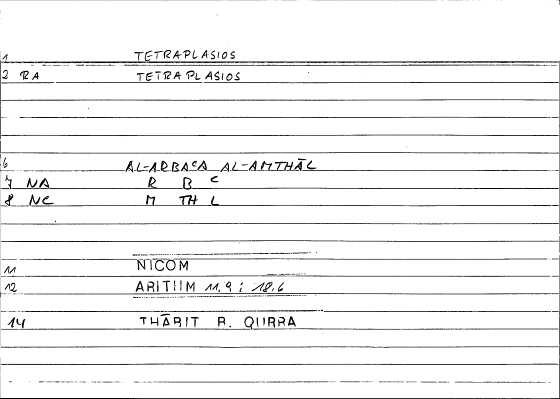 1 TETRAPLASIOS
2 RA TETRAPLASIOS
6 AL-ARBAᶜA AL-AMTHĀL
7 NA R B ᶜ
8 NC M TH L
11 NICOM
12 ARITHM 11.9 ; 18.6
14 THĀBIT B. QURRA